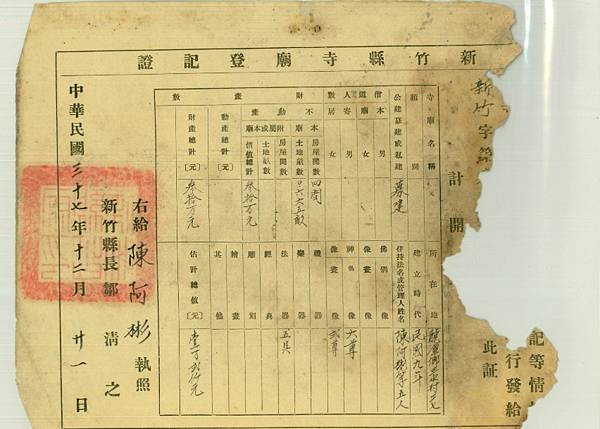 新竹縣寺廟登記證
新竹字第
計開
記等情
行發給
此証
寺廟名稱
類別
公建募建或私建 募建
僧道人數
本廟
男
女
寄居
男
女
財產數
不動產
本廟
房屋間數 四間
土地畝數
附屬或本廟
房屋間數
土地畝數
價值總計 叁拾万元
動產總計(元)
財產總計(元) 叁拾万元
所在地
建立時代 民國九年
住持法名或管理人姓名 陳阿彬等五人
佛像
像
畫像
神像
像 六尊
畫像 弍尊
禮器
樂器
法器 五具
經典
雕刻
繪畫
其他
估計總值(元)
右給 陳阿彬 執照
新竹縣長 鄒清之
中華民國三十七年十二月廿一日